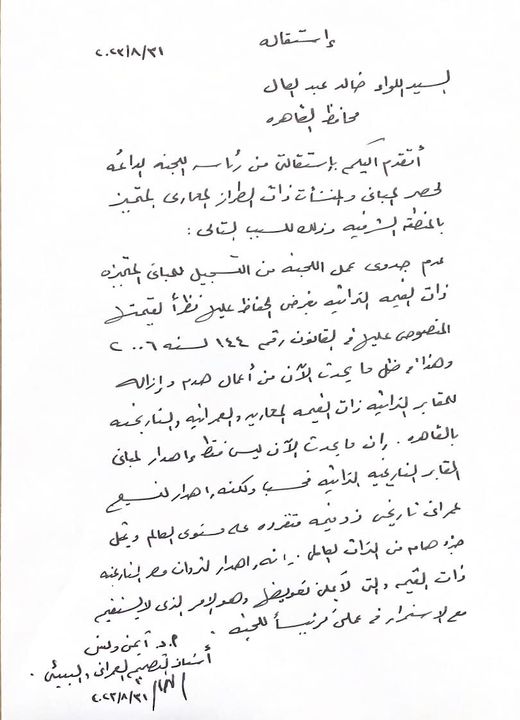 إستقاله
٢٠٢٣/٨/٣١
السيد اللواء خالد عبد العال
محافظ القاهره
أتقدم اليكم بإستقالتى من رئاسه اللجنه الدائمه
لحصر المبانى والمنشأت ذات الطراز المعمارى المتميز
بالمنطقه الشرقيه وذلك للسبب التالى :
عدم جدوى عمل اللجنه من التسجيل للمبانى المتميزه
ذات القيمه التراثيه بغرض الحفاظ عليها نظراً لقيمتها
المنصوص عليها فى القانون رقم ١٤٤ لسنه ٢٠٠٦
وهذا فى ظل ما يحدث الآن من أعمال هدم وإزاله
للمقابر التراثيه ذات القيمه المعماريه والعمرانيه والتاريخيه
بالقاهره . إن ما يحدث الآن ليس فقط إهدار لمبانى
المقابر التاريخيه التراثيه فحسب ولكنه إهدار لنسيج
عمرانى تاريخى ذو قيمه متفرده على مستوى العالم ويمثل
جزء هام من التراث العالمى . إنه إهدار لثروات مصر التاريخيه
ذات القيمه والتى لا يمكن تعويضها وهو الامر الذى لا يستقيم
مع الاستمرار فى عملى كرئيساً للجنه .
أ.د. أيمن ونس
أستاذ التصميم العمرانى والبيئى .
٢٠٢٣/٨/٣١